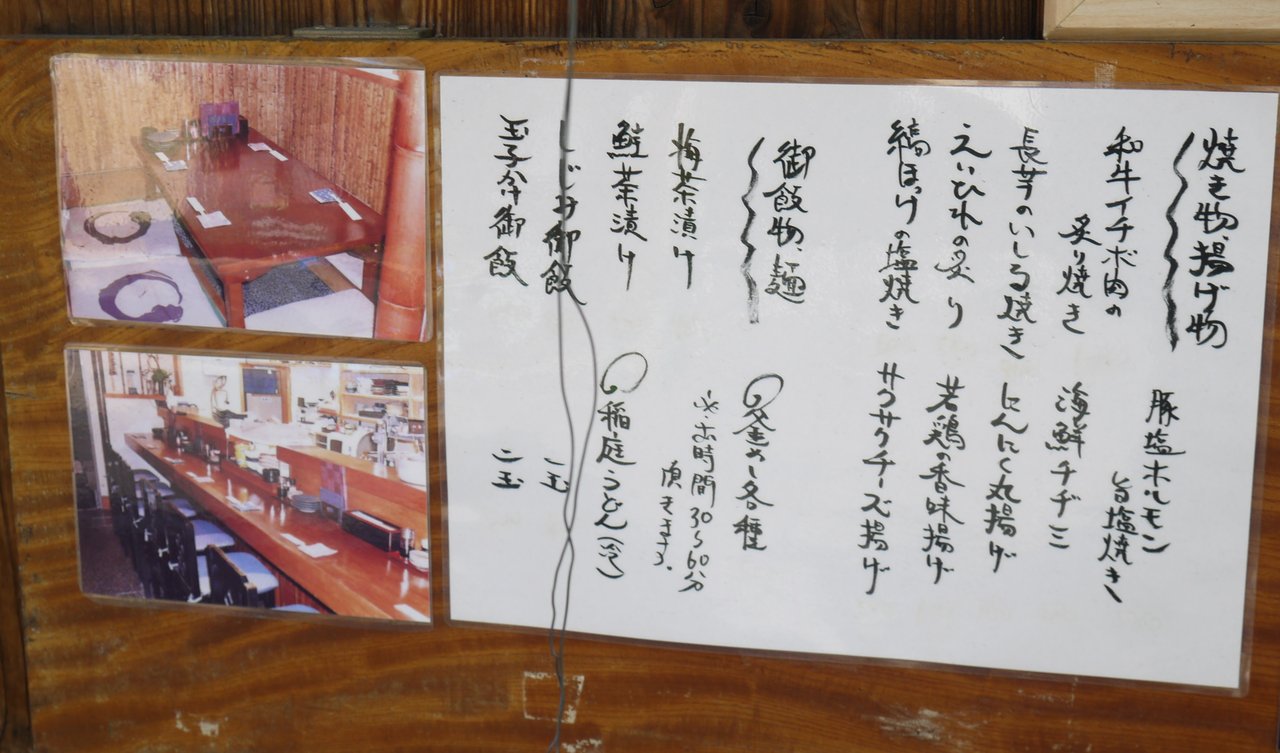 焼き物、揚げ物
和牛イチボ肉の
炙り焼き
長芋のいしる焼き
えいひれの炙り
縞ほっけの塩焼き
豚塩ホルモン
旨塩焼き
海鮮チヂミ
にんにく丸揚げ
若鶏の香味揚げ
サクサクチーズ揚げ
御飯物、麺
梅茶漬け
鮭茶漬け
しじみ御飯
玉子かけ御飯
釜めし各種
※お時間30〜60分
頂きます。
稲庭うどん(冷)
一玉
二玉